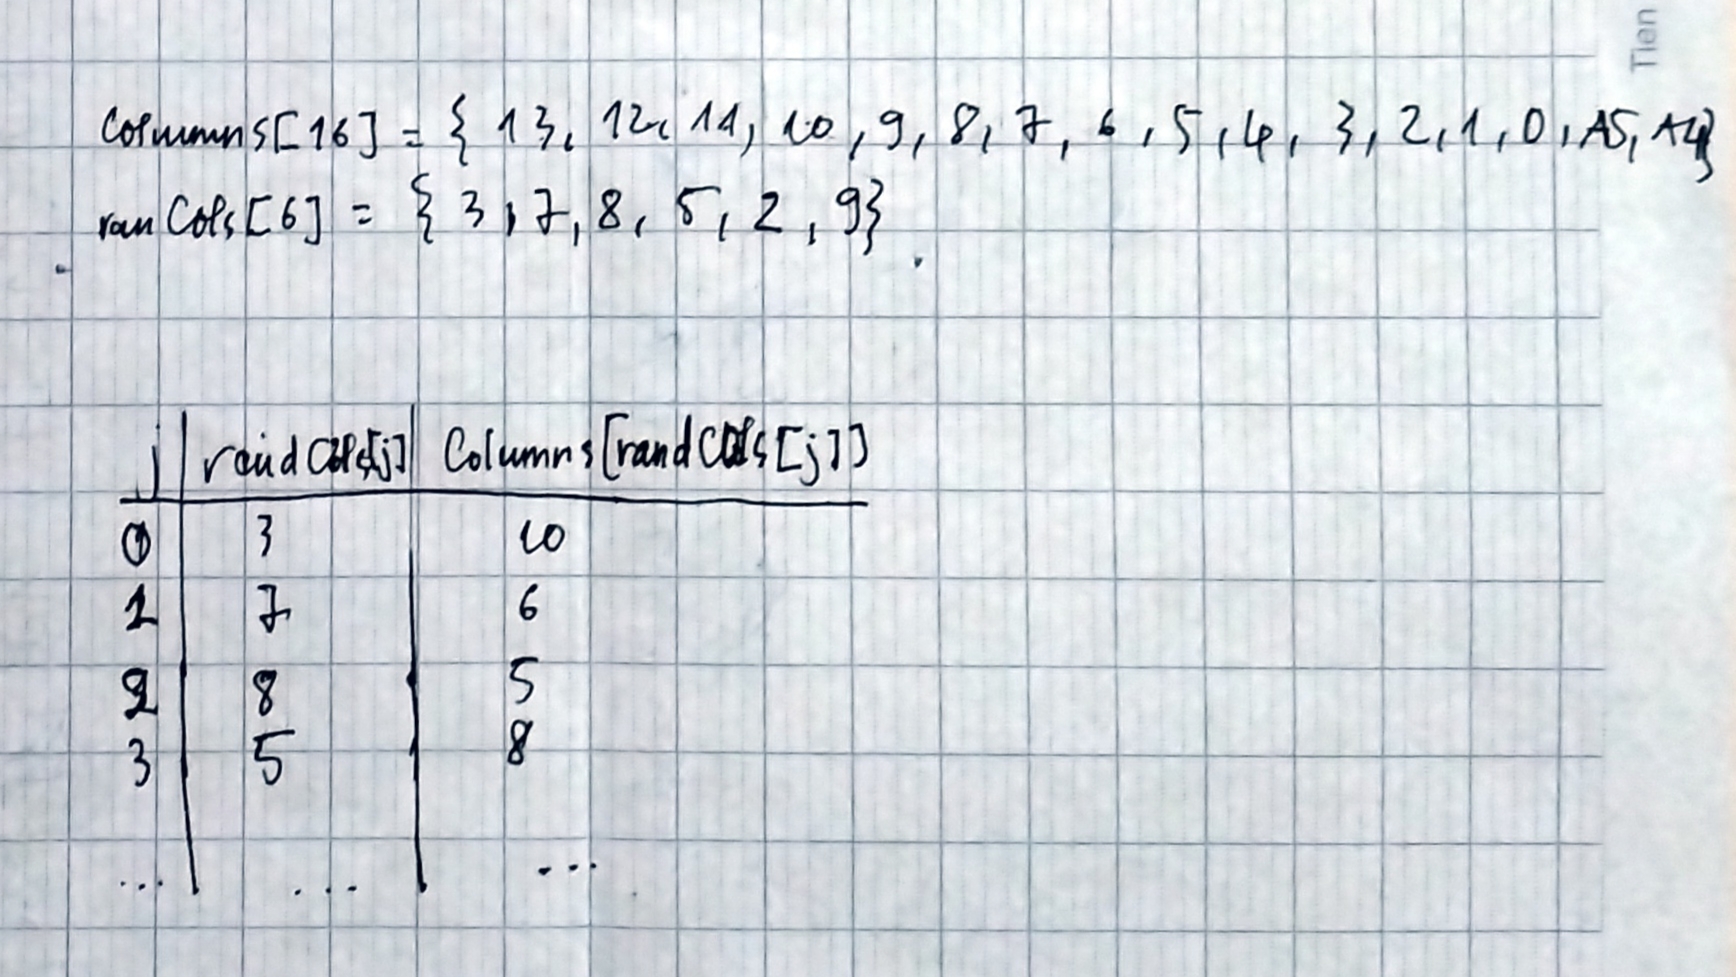 Columns[16] = { 13, 12, 11, 10, 9, 8, 7, 6, 5, 4, 3, 2, 1, 0, A5, A4}
ranCols[6] = { 3, 7, 8, 5, 2, 9}
j randCols[j] Columns[randCols[j]]
0 3 10
1 7 6
2 8 5
3 5 8
... ... ...
Tien